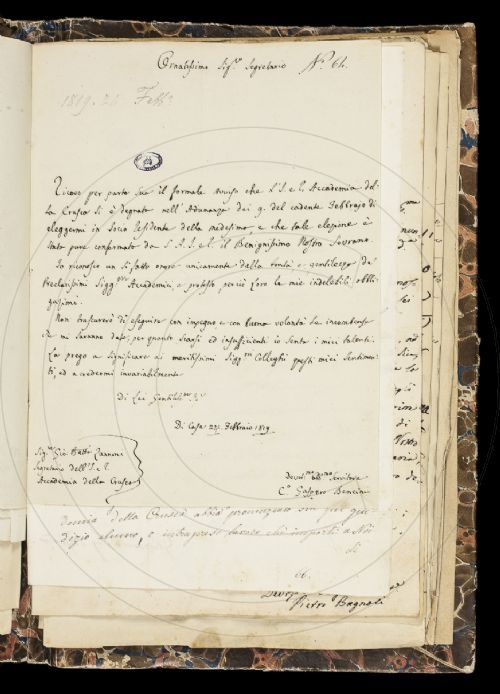 Ornatissimo Sig.re Segretario Nº. 64.
1819. 26. Febb.o
Ricevo per parte sua il formale avviso che l'I. e R. Accademia del-
la Crusca si è degnata nell'Adunanza dei 9. del cadente Febbrajo di
eleggermi in Socio Residente della medesima e che tale elezione è
stata pure confermata da S. A. I. e R. il Benignissimo Nostro Sovrano.
Io riconosco un sì fatto onore unicamente dalla bontà e gentilezza de'
Preclarissimi Sigg.ri Accademici, e protesto, perciò Loro le mie indelebili obbli-
gazioni.
Non trascurerò di eseguire con impegno e con buona volontà le incombenze
che mi saranno date, per quanto scarsi ed insufficienti io senta i miei talenti.
La prego a significare ai meritissimi Sigg.ri Colleghi questi miei sentimen-
ti, ed a credermi invariabilmente
Di Lei
Di Casa Febbraio 1819
Sig.re Gio. Batta Zannoni
Segretario dell'I. e R.
Accademia della Crusca
Servitore
Gaspero Bencini
demia della Crusca abbia pronunziato un giu-
dizio alcuno, o intrapreso lavoro che importi a Noi
di
66.
Pietro Bagnoli